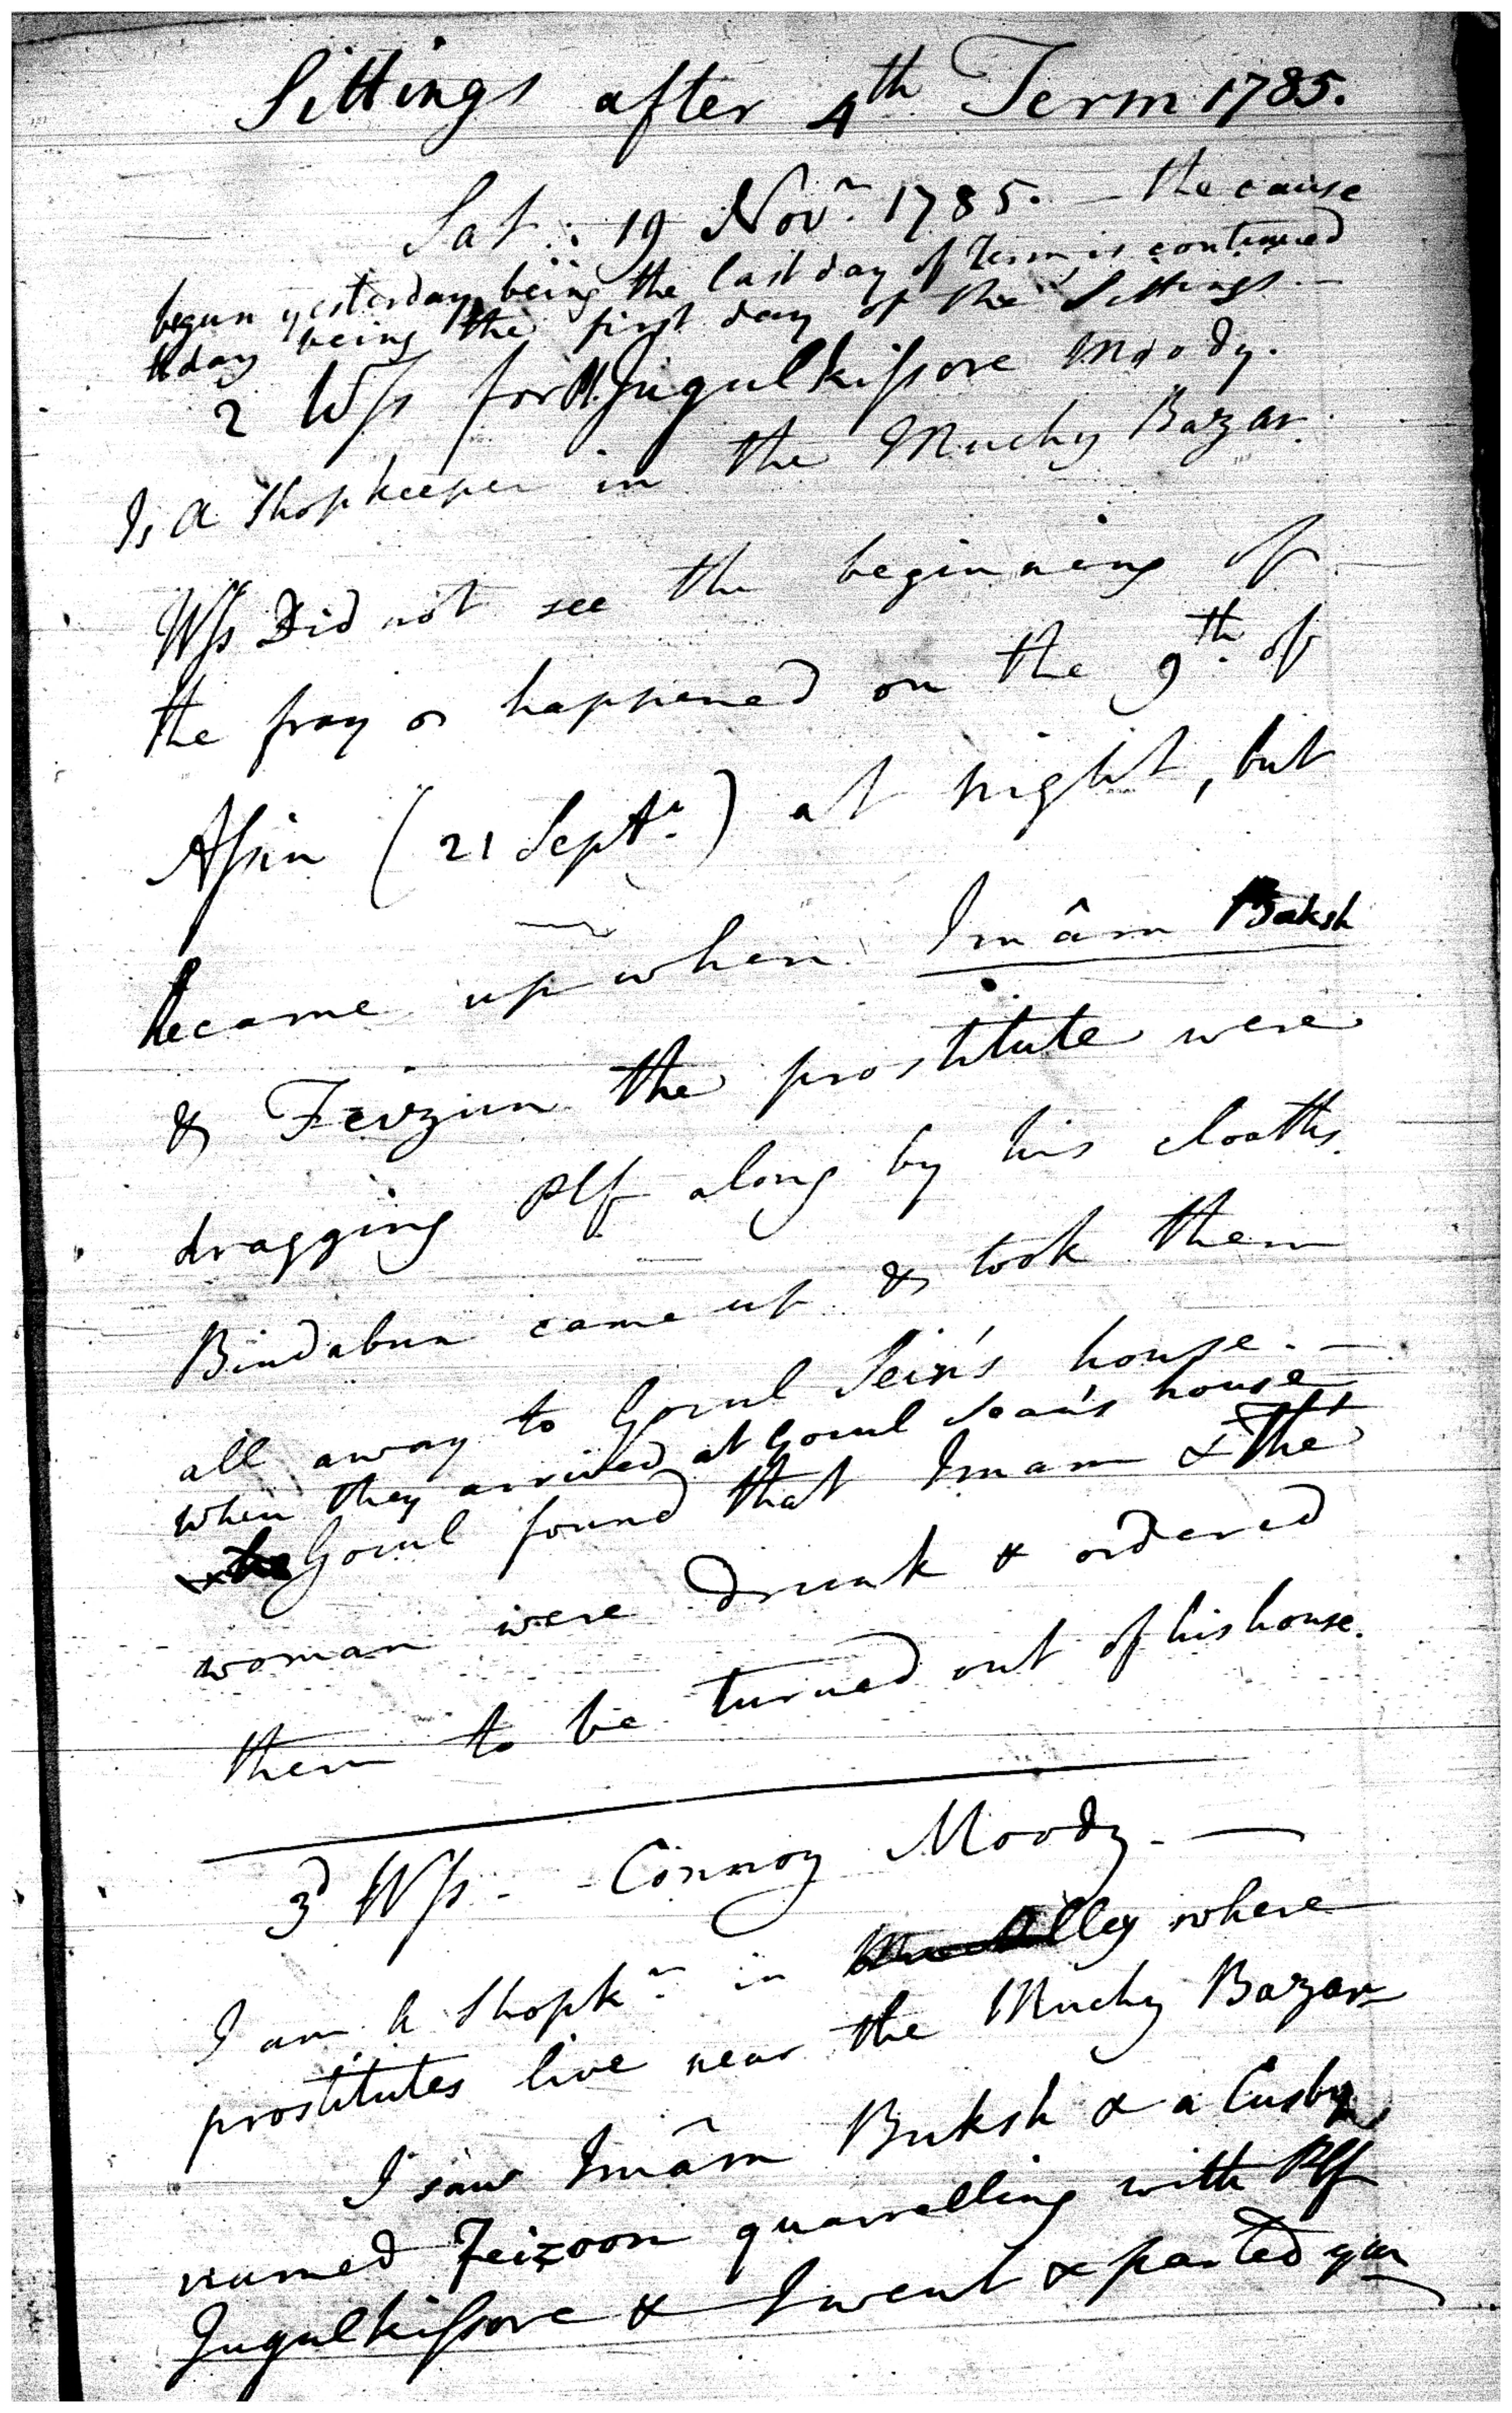 Sittings after 4th Term 1785.
Sat: 19 Novr. 1785. — the cause
begun yesterday being the last day of Term is continued
to day being the first day of the Sittings. —
2 Wss for Jugulkissore Moody.
Is a Shopkeeper in the Muchy Bazar.
Wss Did not see the beginning of
the fray happened on the 9th. of
Assin (21 Septr.) at night, but
he came up when Imâm Baksh
& Feizun the prostitute were
dragging Plf along by his cloaths.
Bindabun came up & took them
all away to Gocul Sein's house. —
when they arrived at Gocul Sean's house
Gocul found that Imam & the
woman were drunk & ordered
them to be turned out of his house.
3d Wss — Connoy Moody. —
I am a Shopkr. in Alley where
prostitutes live near the Muchy Bazar
I saw Imâm Buksh & a Cusby
named Feizoon quarrelling with Plf
Jugulkissore & I went & parted ym